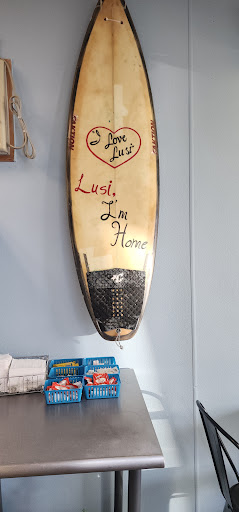 I Love
Lusi
Lusi,
I'm
Home